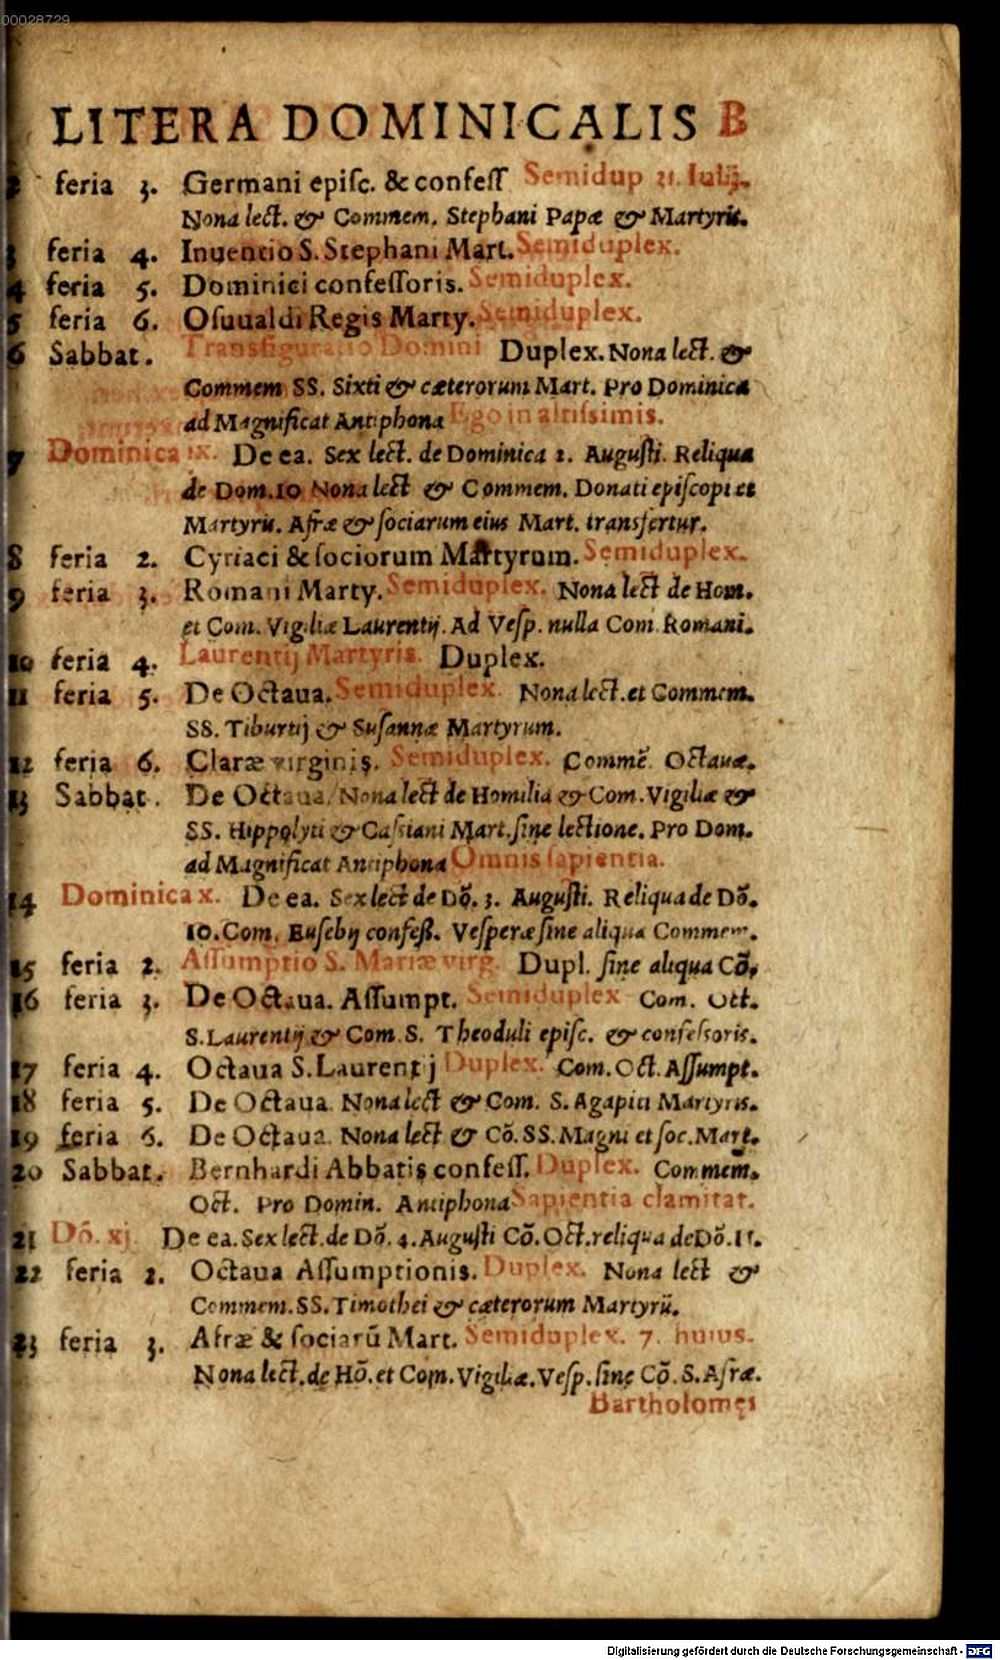 00028729
LITERA DOMINICALIS B
2 feria 3. Germani episc. & confeſſ Semidup 21. Iulij.
Nona lect. & Commem. Stephani Papæ & Martyris.
3 feria 4. Inuentio S. Stephani Mart. Semiduplex.
4 feria 5. Dominici confeſſoris. Semiduplex.
5 feria 6. Oſuualdi Regis Marty. Semiduplex.
6 Sabbat. Transfiguratio Domini Duplex. Nona lect. &
Commem SS. Sixti & cæterorum Mart. Pro Dominica
ad Magnificat Antiphona Ego in altiſsimis.
7 Dominica ix. De ea. Sex lect. de Dominica 2. Auguſti. Reliqua
de Dom. 10 Nona lect & Commem. Donati epiſcopi et
Martyris. Afræ & ſociarum eius Mart. transfertur.
8 feria 2. Cyriaci & ſociorum Martyrum. Semiduplex.
9 feria 3. Romani Marty. Semiduplex. Nona lect de Hom.
et Com. Vigiliæ Laurentij. Ad Veſp. nulla Com. Romani.
10 feria 4. Laurentij Martyris. Duplex.
11 feria 5. De Octaua. Semiduplex. Nona lect. et Commem.
SS. Tiburtij & Suſannæ Martyrum.
12 feria 6. Claræ virginis. Semiduplex. Commē. Octauæ.
13 Sabbat. De Octaua. Nona lect de Homilia & Com. Vigiliæ &
SS. Hippolyti & Caſsiani Mart. ſine lectione. Pro Dom.
ad Magnificat Antiphona Omnis ſapientia.
14 Dominica x. De ea. Sex lect de Dō. 3. Auguſti. Reliqua de Dō.
10. Com. Euſebij confeß. Veſperæ ſine aliqua Commem.
15 feria 2. Aſſumptio S. Mariæ virg. Dupl. ſine aliqua Cō.
16 feria 3. De Octaua. Aſſumpt. Semiduplex Com. Oct.
S. Laurentij & Com. S. Theoduli epiſc. & confeſsoris.
17 feria 4. Octaua S. Laurentij Duplex. Com. Oct. Aſſumpt.
18 feria 5. De Octaua. Nona lect & Com. S. Agapiti Martyris.
19 feria 6. De Octaua. Nona lect & Cō. SS. Magni et ſoc. Mart.
20 Sabbat. Bernhardi Abbatis confeſſ. Duplex. Commem.
Oct. Pro Domin. Antiphona Sapientia clamitat.
21 Dō. xj. De ea. Sex lect. de Dō. 4. Auguſti Cō. Oct. reliqua de Dō. 11.
22 feria 2. Octaua Aſſumptionis. Duplex. Nona lect &
Commem. SS. Timothei & cæterorum Martyrū.
23 feria 3. Afræ & ſociarū Mart. Semiduplex. 7. huius.
Nona lect. de Hō. et Com. Vigiliæ. Veſp. ſine Cō. S. Afræ.
Bartholomęi
Digitalisierung gefördert durch die Deutsche Forschungsgemeinschaft - DFG